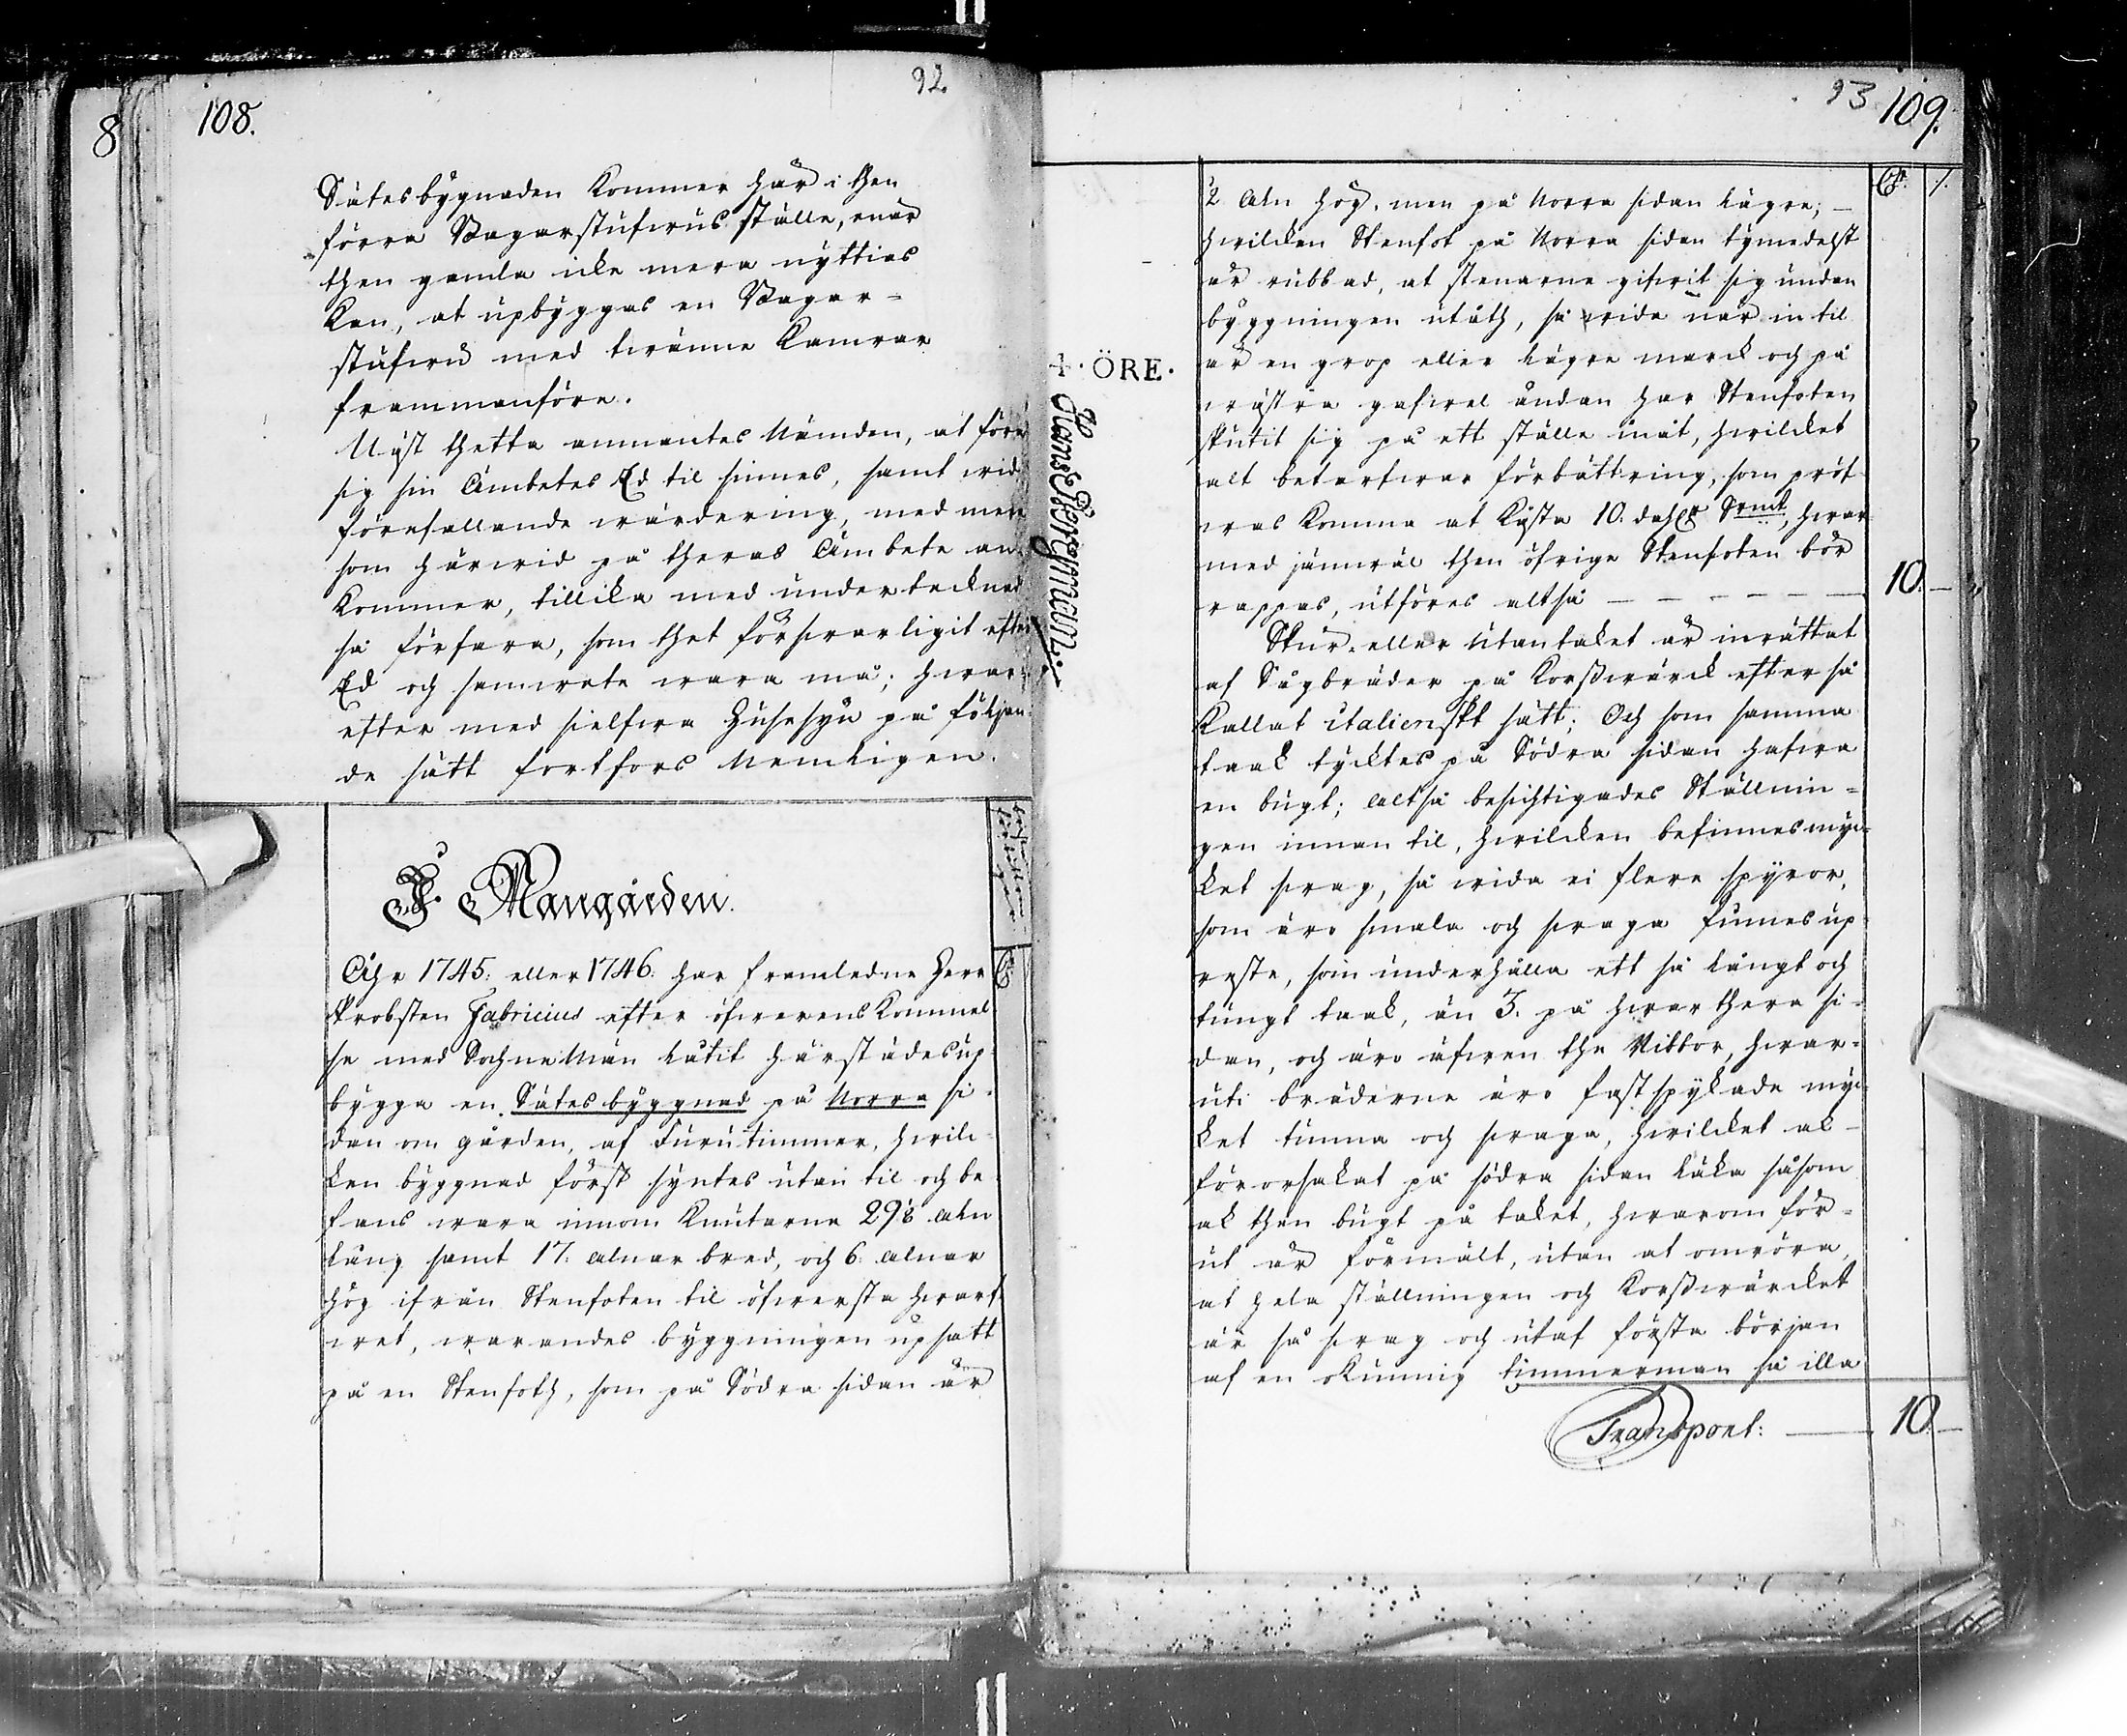 92.
108.
8
Sätesbygnaden kommer här i then
förra Bagarstufwus ställe, enär
then gamla icke mera nyttias
kan, at upbyggas en Bagar=
stufwu med twänne Kamrar
frammanföre.
Uppå thetta anmantes Nämden, at föra
sig sin Ämbetes Ed til sinnes, samt wid
förefallande wärdering, med mera
som härwid på theras Ämbete an-
kommer, tillika med undertecknad
så förfara, som thet förswarligit efter
Ed och samwete wara må; hwar-
efter med sielfwa Husesyn på följan-
de sätt fortfors Nemligen.
J. Mangården.
Åhr 1745: eller 1746: har framledne Herr
Probsten Fabricius efter öfwerenskommel
se med SochneMän låtit härstädes up-
bygga en Sätesbyggnad på Norra si-
dan om gården, af Furutimmer, hwil-
ken byggnad först syntes utan til och be
fans wara innom Knutarna 29½ aln
lång samt 17. alnar bred, och 6 alnar
hög ifrån Stenfoten til öfwersta hwarf-
wet, warandes byggningen upsatt
på en Stenfoth, som på Södra sidan är
93
109.
+ · ÖRE ·
½ aln hög, men på Norra sidan lägre; —
hwilcken Stenfot på Norra sidan tymedelst
är rubbad, at stenarne gifwit sig undan
byggningen utåth, så wida när in til
är en grop eller lägre marck och på
wästra gafwel ändan har Stenfoten
skutit sig på ett ställe inåt, hwilcket
alt betarfwar förbättring, som pröf-
was komma at kåsta 10. dahlr Srmt, hwar
med jämwäl then öfrige Stenfoten bör
rappas, utföres altså — — — — — 10. —
Skur- eller Utantaket är inrättat
af Sågbräder på Korßwärck efter så
kallat italienskt sätt; Och som samma
taak tycktes på Södra sidan hafwa
en bugt; altså besichtigades Ställnin=
gen innan til, hwilcken befinnes myc-
ket swag, så wida ei flere spyror,
som äro smala och swaga finnes up-
reste, som underhålla ett så långt och
tungt taak, än 3. på hwarthera si-
dan, och äro äfwen the Ribbor, hwar-
uti bräderne äro fastspykade myc-
ket tunna och swaga, hwilcket al-
förorsakat på södra sidan läka såsom
ak then bugt på taket, hwarom för-
ut är förmält, utan at omröra,
at hela ställningen och Korßwärcket
är så swag och utaf första början
af en okunnig timmerman så illa
Transport: — 10 —